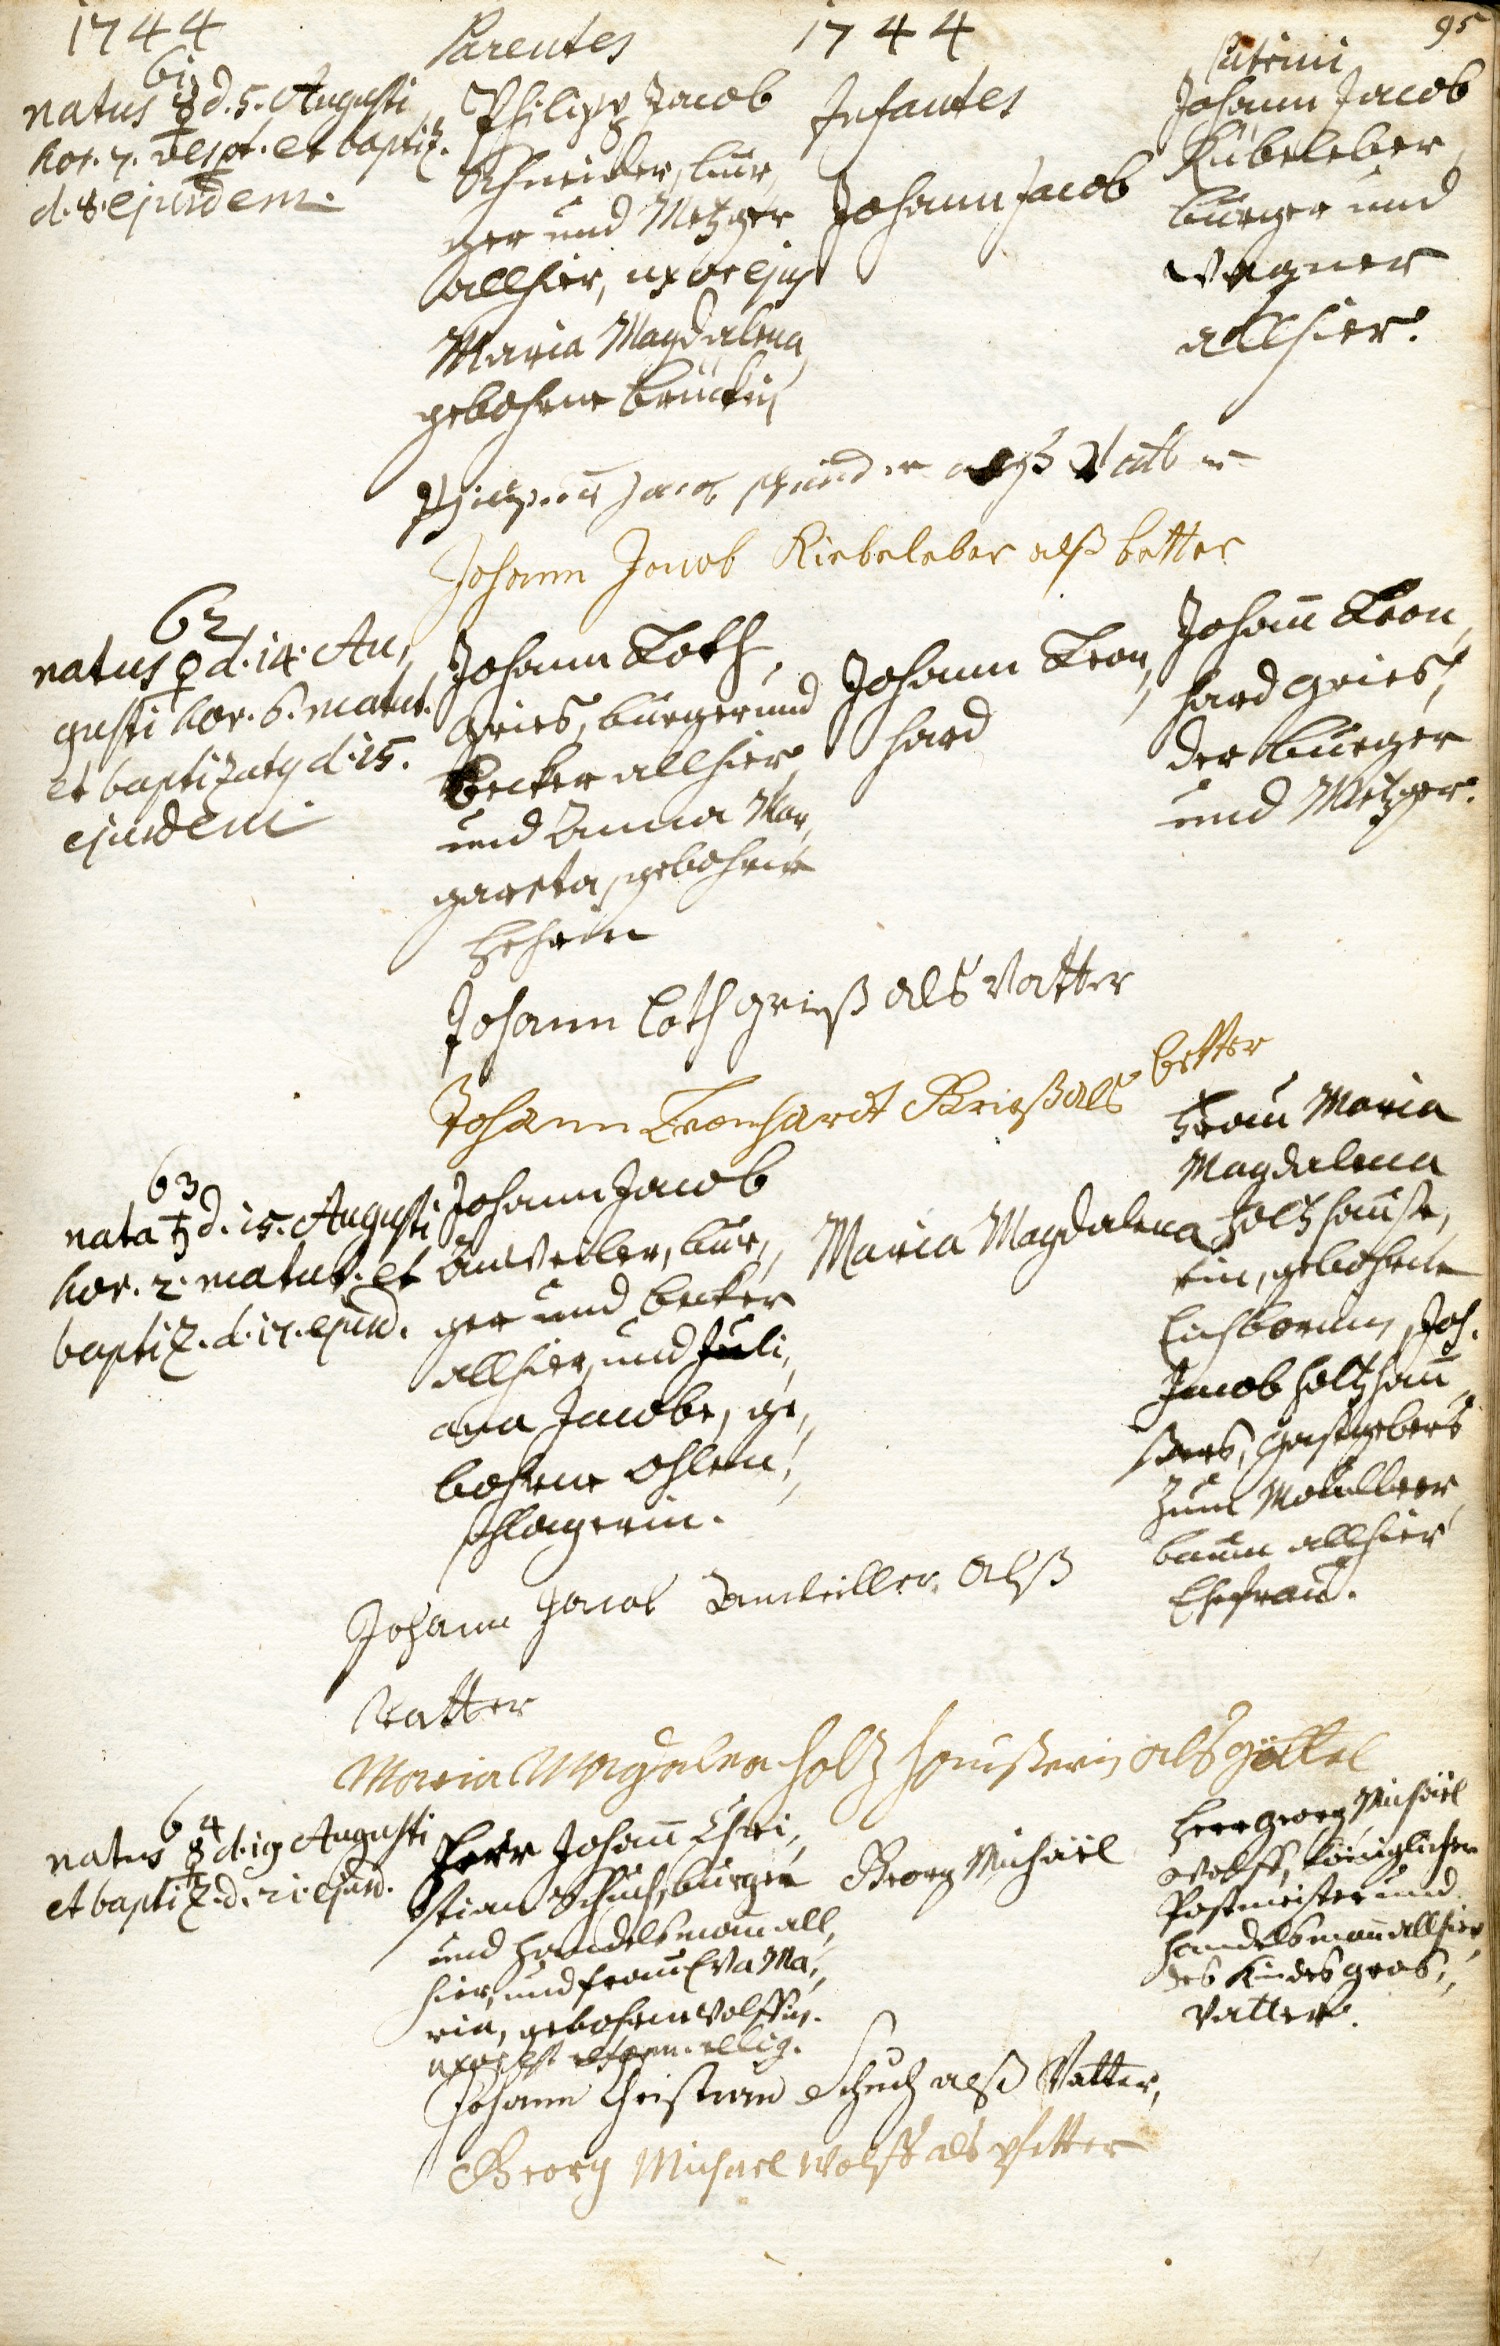 1744
Parentes
1744
95
61
natus ☿ d. 5. Augusti
hor. 7. vespt. et baptiz.
d. 8. ejusdem.
Philipp Jacob
Schneider, bur„
ger und Metzger
allhier, uxor ejus
Maria Magdalena,
gebohrne Brückin
Infantes
Johann Jacob
Patrini
Johann Jacob
Kübeleber,
burger und
Wagner
allhier.
Jacob als Vatter
Johann Jacob Kiebeleber alß Petter
62
natus ♀ d. 14. Au„
gusti hor. 6. matut.
et baptizatus d. 15.
ejusdem
Johann Loth
Gries, burger und
Becker allhier,
und Anna Mar„
gareta, gebohrne
Johann Leon„
hard
Johann Leon„
hard Gries,
der burger
und Metzger.
Johann Loth Grieß als Vatter
Johann Leonhardt Grieß als Petter
63
nata ♄ d. 15. Augusti
hor. 2. matut. et
baptiz. d. 17. ejusd.
Johann Jacob
Anweiler, bur„
ger und becker
allhier, und Juli„
ana Jacobe, ge„
bohrne Ohlen„
schlagerin.
Maria Magdalena
Frau Maria
Magdalena
Holtzhauße„
rin, gebohrne
Eichbornin, Joh.
Jacob Holtzhau„
ßers, Gastgebers
zum Maulbeer„
baum allhier
Ehefrau.
Johann Jacob Anweiller alß
Vatter
Maria Magdalena Holtzhaußerin als Göttel
64
natus ☿ d. 19 Augusti
et baptiz. d. 21. ejusd.
Herr Johann Chri„
stian Schuch, burger
und Handelsmann all„
hier, und frau Eva Ma„
ria, gebohrne Wolffin.
Georg Michaël
Herr Georg Michaël
Wolff, königlicher
Postmeister und
Handelsmann allhier,
des Kindes Gros„
vatter.
Johann Christian Schuch alß Vatter,
Georg Michael Wolff als Pfetter